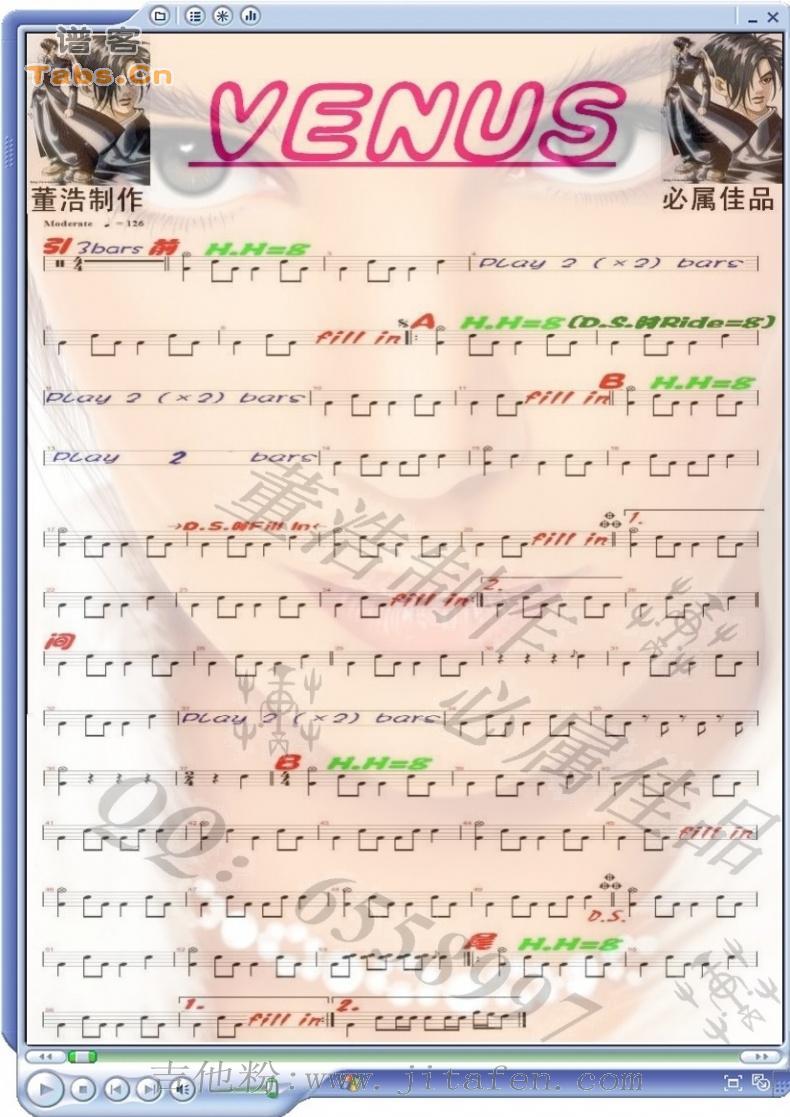 谱客
Tabs.Cn
VENUS
董浩制作
必属佳品
Moderate ♩=126
引 3bars 前 H.H=8
Play 2 (×2) bars
fill in A H.H=8 (D.S.时Ride=8)
Play 2 (×2) bars fill in B H.H=8
Play 2 bars
→D.S.时Fill In← fill in 1.
fill in 2.
间
Play 2 (×2) bars
B H.H=8
fill in
D.S.
尾 H.H=8
1. fill in 2.
董浩制作 必属佳品
QQ：6558997
吉他粉:www.jitafen.com